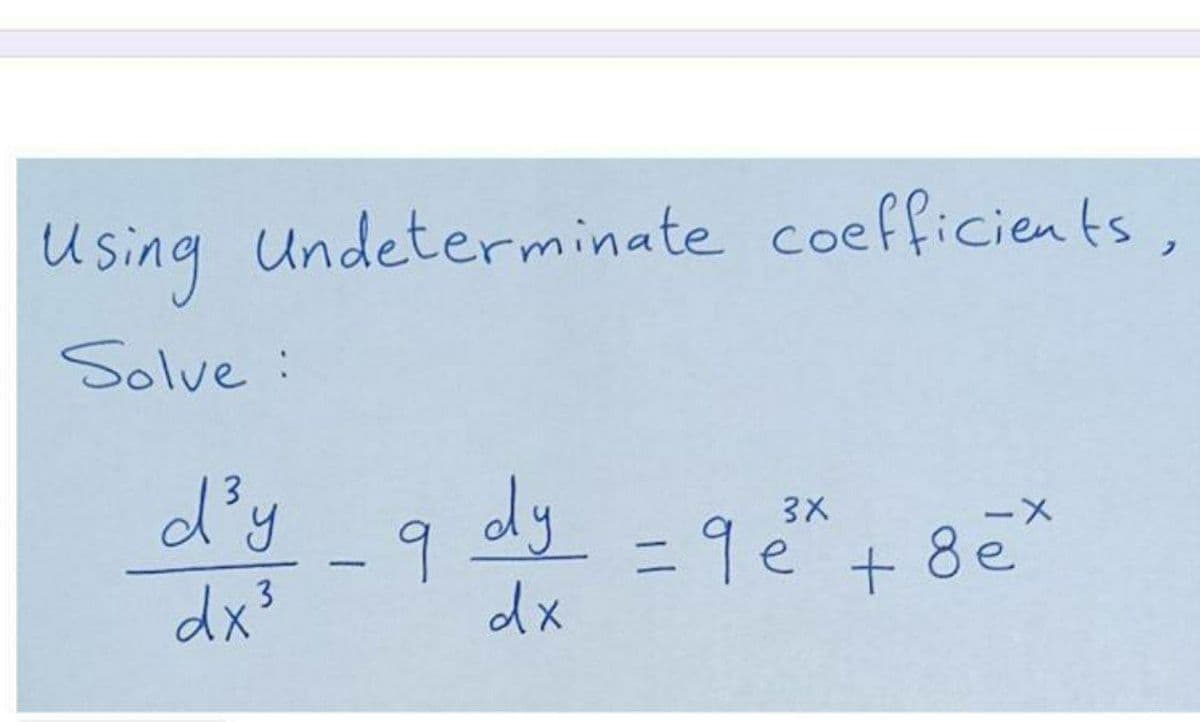 Using Undeterminate coefficients,
Solve :
d³y/dx³ - 9 dy/dx = 9e^{3x} + 8e^{-x}